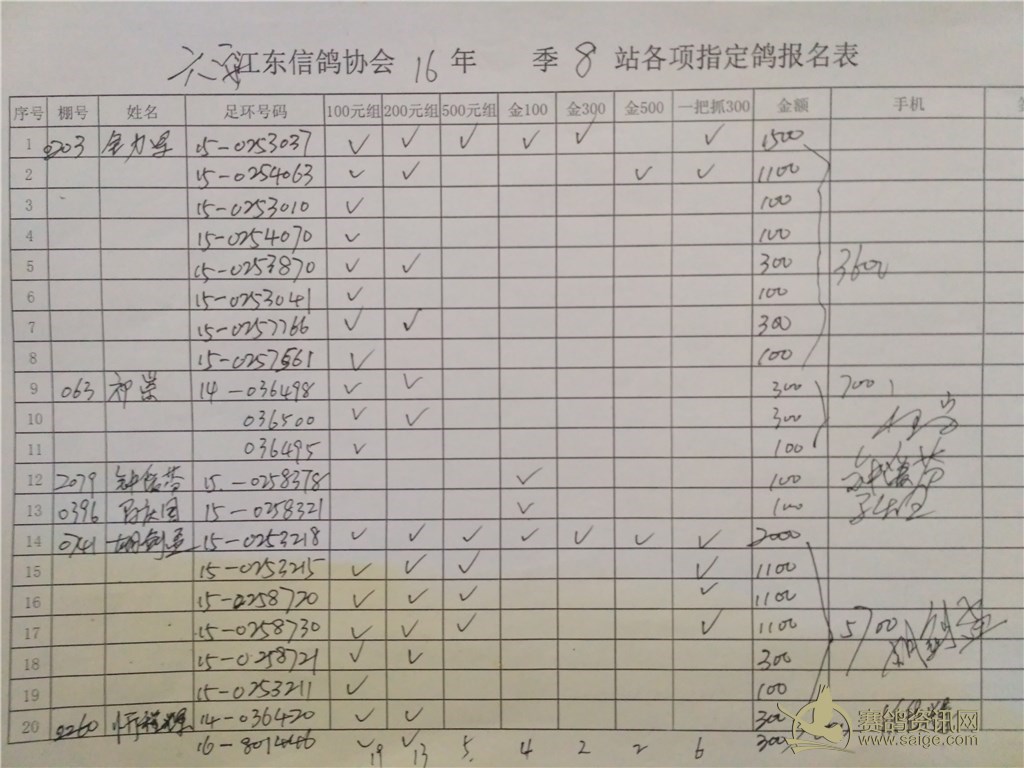 江东信鸽协会 16 年 季 8 站各项指定鸽报名表
序号 棚号 姓名 足环号码 100元组 200元组 500元组 金100 金300 金500 一把抓300 金额 手机
1 203 15-0253037 ✓ ✓ ✓ ✓ ✓ ✓ 1500
2 15-0254063 ✓ ✓ ✓ ✓ 1100
3 15-0253010 ✓ 100
4 15-0254070 ✓ 100
5 15-0253870 ✓ ✓ 300 3600
6 15-0253041 ✓ 100
7 15-0257766 ✓ ✓ 300
8 15-0257561 ✓ 100
9 063 14-036498 ✓ ✓ 300 700
10 036500 ✓ ✓ 300
11 036495 ✓ 100
12 2079 15-0258378 ✓ 100
13 0396 15-0258321 ✓ 100
14 0741 胡剑孟 15-0253218 ✓ ✓ ✓ ✓ ✓ ✓ ✓ 2000
15 15-0253215 ✓ ✓ ✓ ✓ 1100
16 15-0258720 ✓ ✓ ✓ ✓ 1100
17 15-0258730 ✓ ✓ ✓ ✓ 1100 5700 胡剑孟
18 15-0258721 ✓ ✓ 300
19 15-0253211 ✓ 100
20 0260 14-036420 ✓ ✓ 300
16-801446 ✓ ✓ 300
19 13 5 4 2 2 6
赛鸽资讯网
www.saige.com